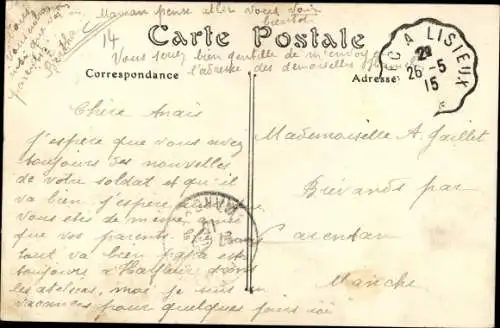 Maman pense aller vous voir
bientôt
Carte Postale
14
Vous serez bien gentille de m'envoyer
l'adresse des demoiselles
Correspondance
Adresse
Berthe
A LISIEUX
2º
26-5
15
Chère Anaïs
J'espère que vous avez
toujours des nouvelles
de votre soldat et qu'il
va bien j'espère
vous êtes de même ainsi
que vos parents
tout va bien papa est
toujours à Harfleur dans
les ateliers, moi je suis en
vacances pour quelques jours ici
Mademoiselle A. Jaillet
Brévands par
Carentan
Manche